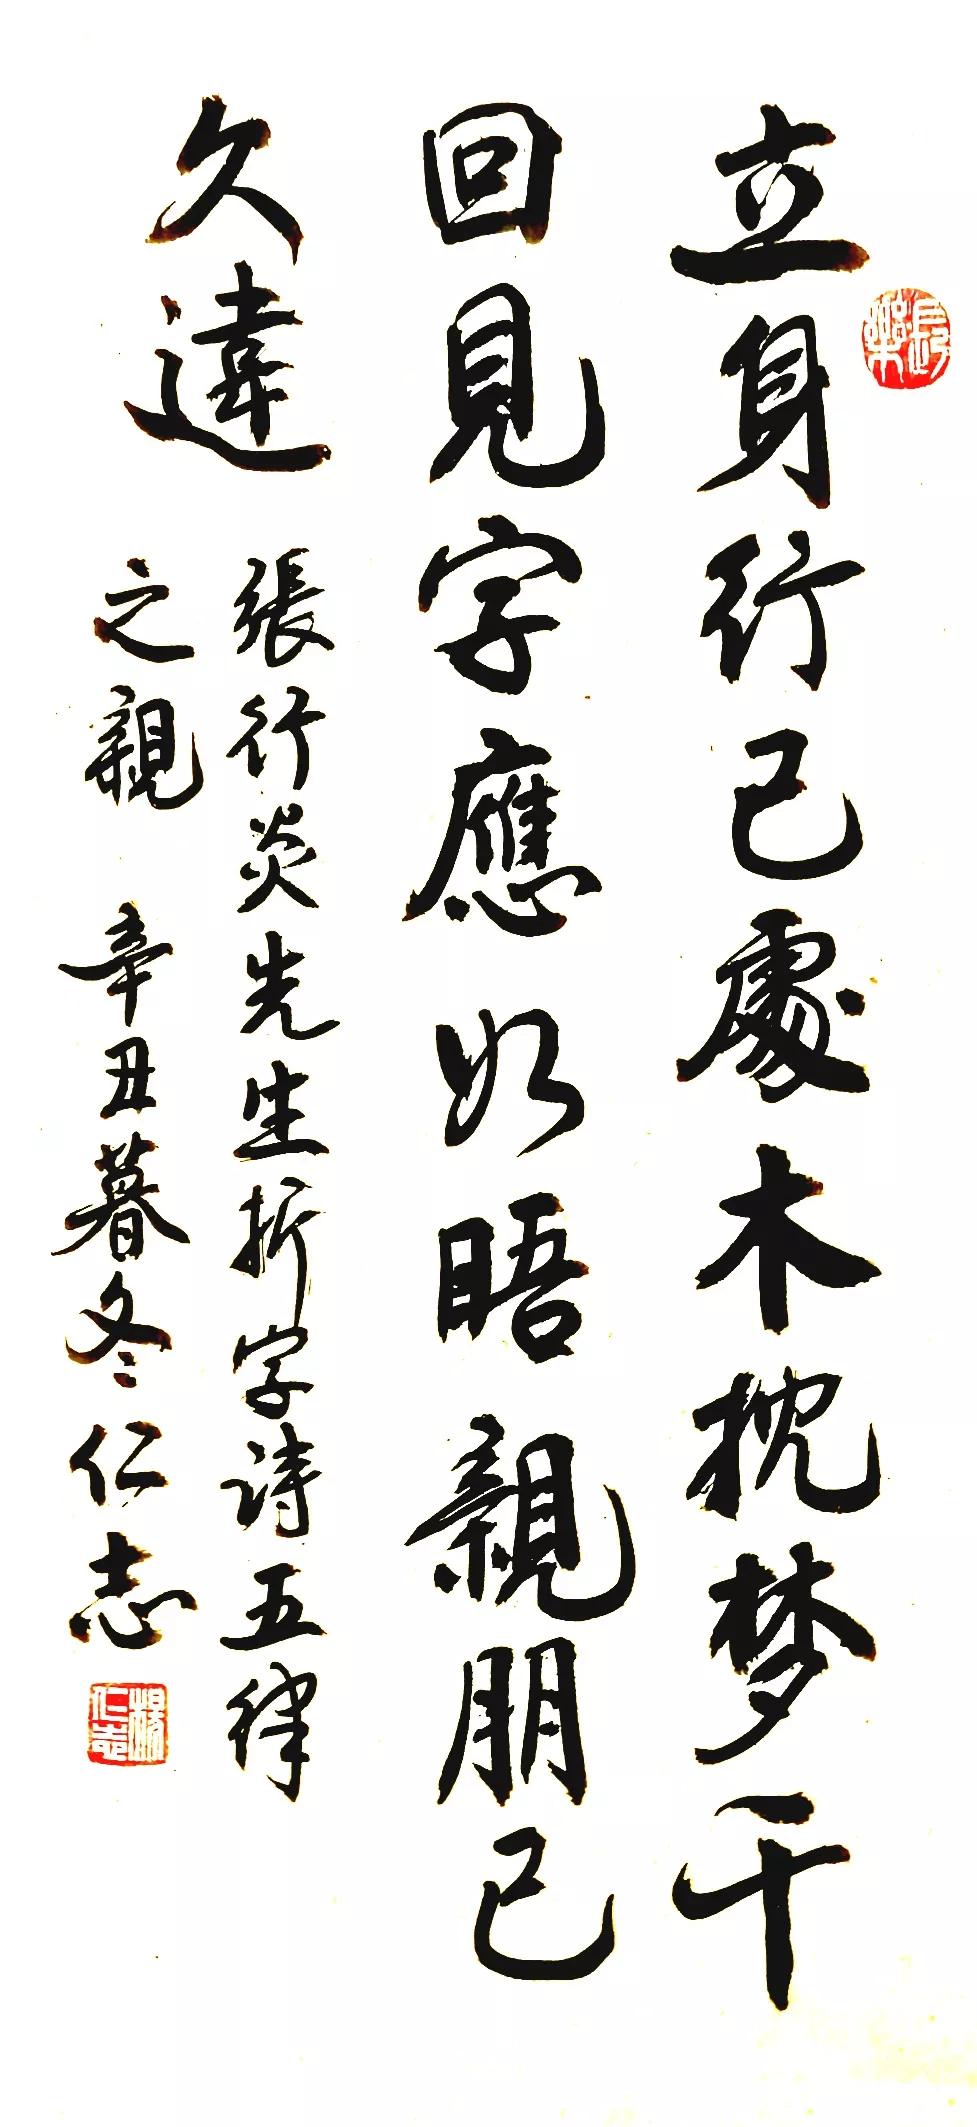 立身行己處木枕梦千
回見字應如晤親朋已
久違
張行炎先生折字詩五律
之親 辛丑暮冬仁志
長樂
楊仁志